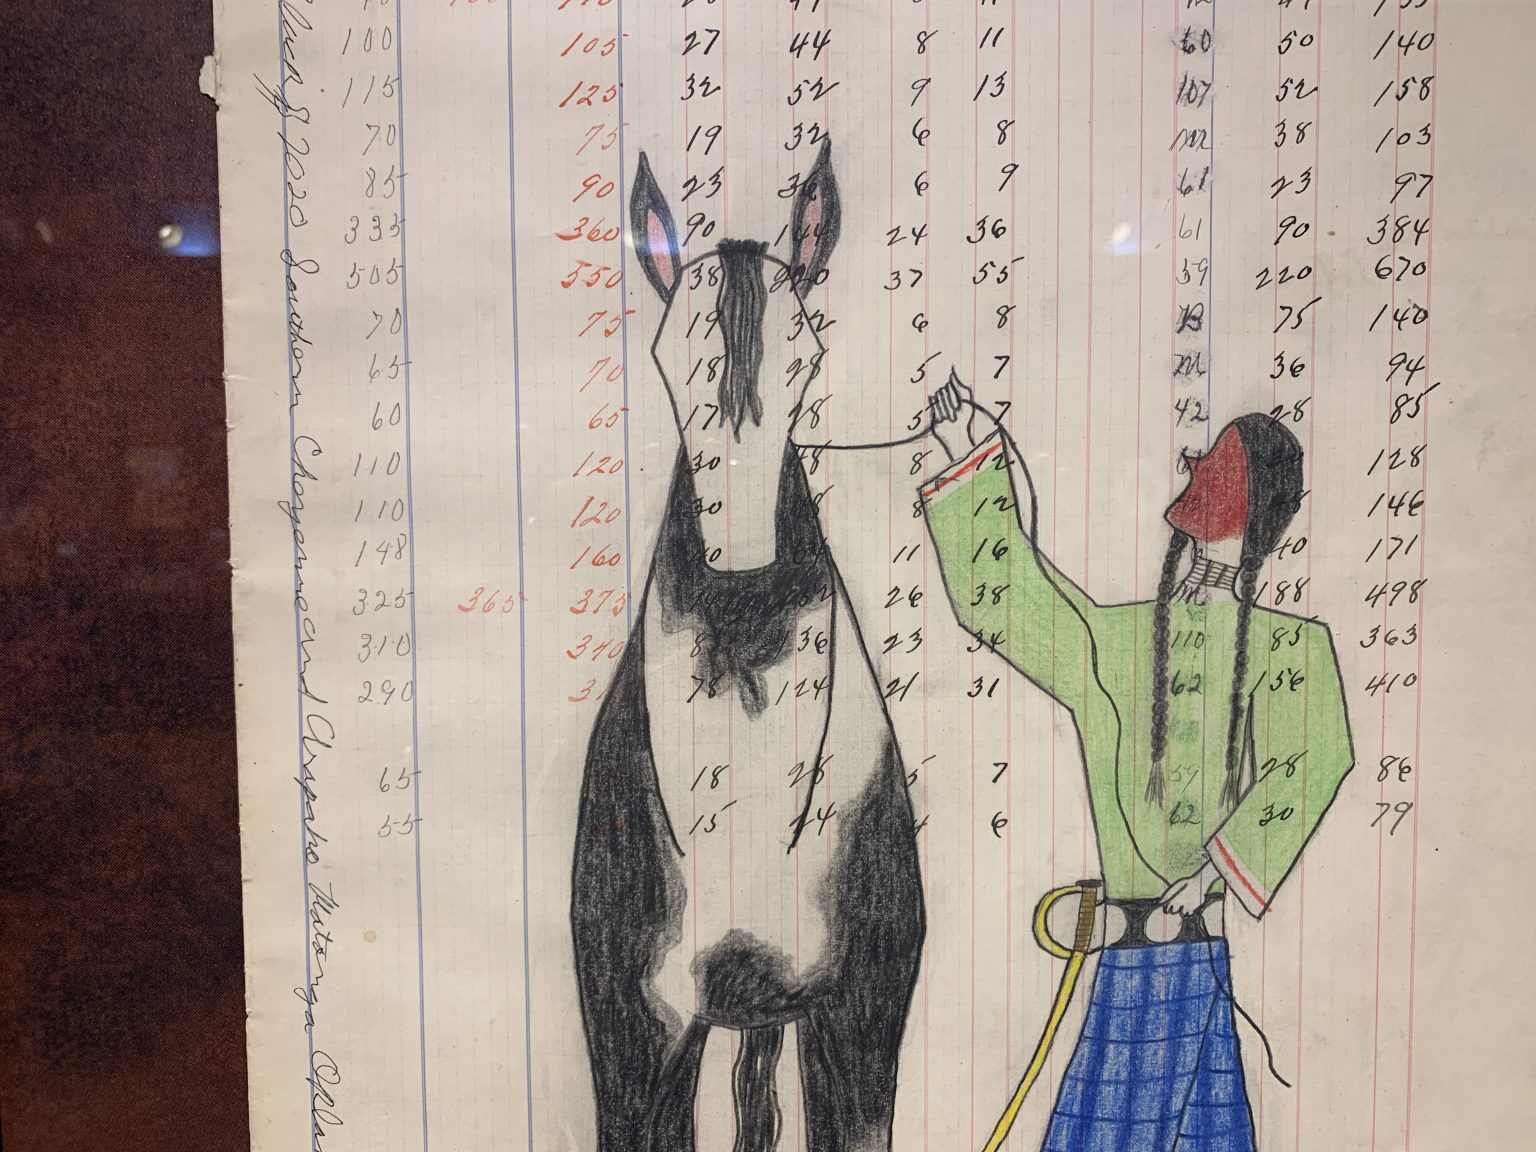 100 105 27 44 8 11 60 50 140
115 125 32 52 9 13 107 52 158
70 75 19 32 6 8 38 103
85 90 23 36 6 9 61 23 97
335 360 90 144 24 36 61 90 384
505 550 38 220 37 55 59 220 670
70 75 19 32 6 8 75 140
65 70 18 28 5 7 m 36 94
60 65 17 28 5 7 42 28 85
110 120 30 48 8 12 128
110 120 30 48 8 12 48 146
148 160 40 11 16 40 171
325 365 375 26 38 m 188 498
310 340 136 23 34 110 85 363
290 78 124 21 31 62 156 410
65 18 28 5 7 59 28 86
55 15 24 4 6 62 30 79
2020 Southern Cheyenne and Arapaho Watonga Okla